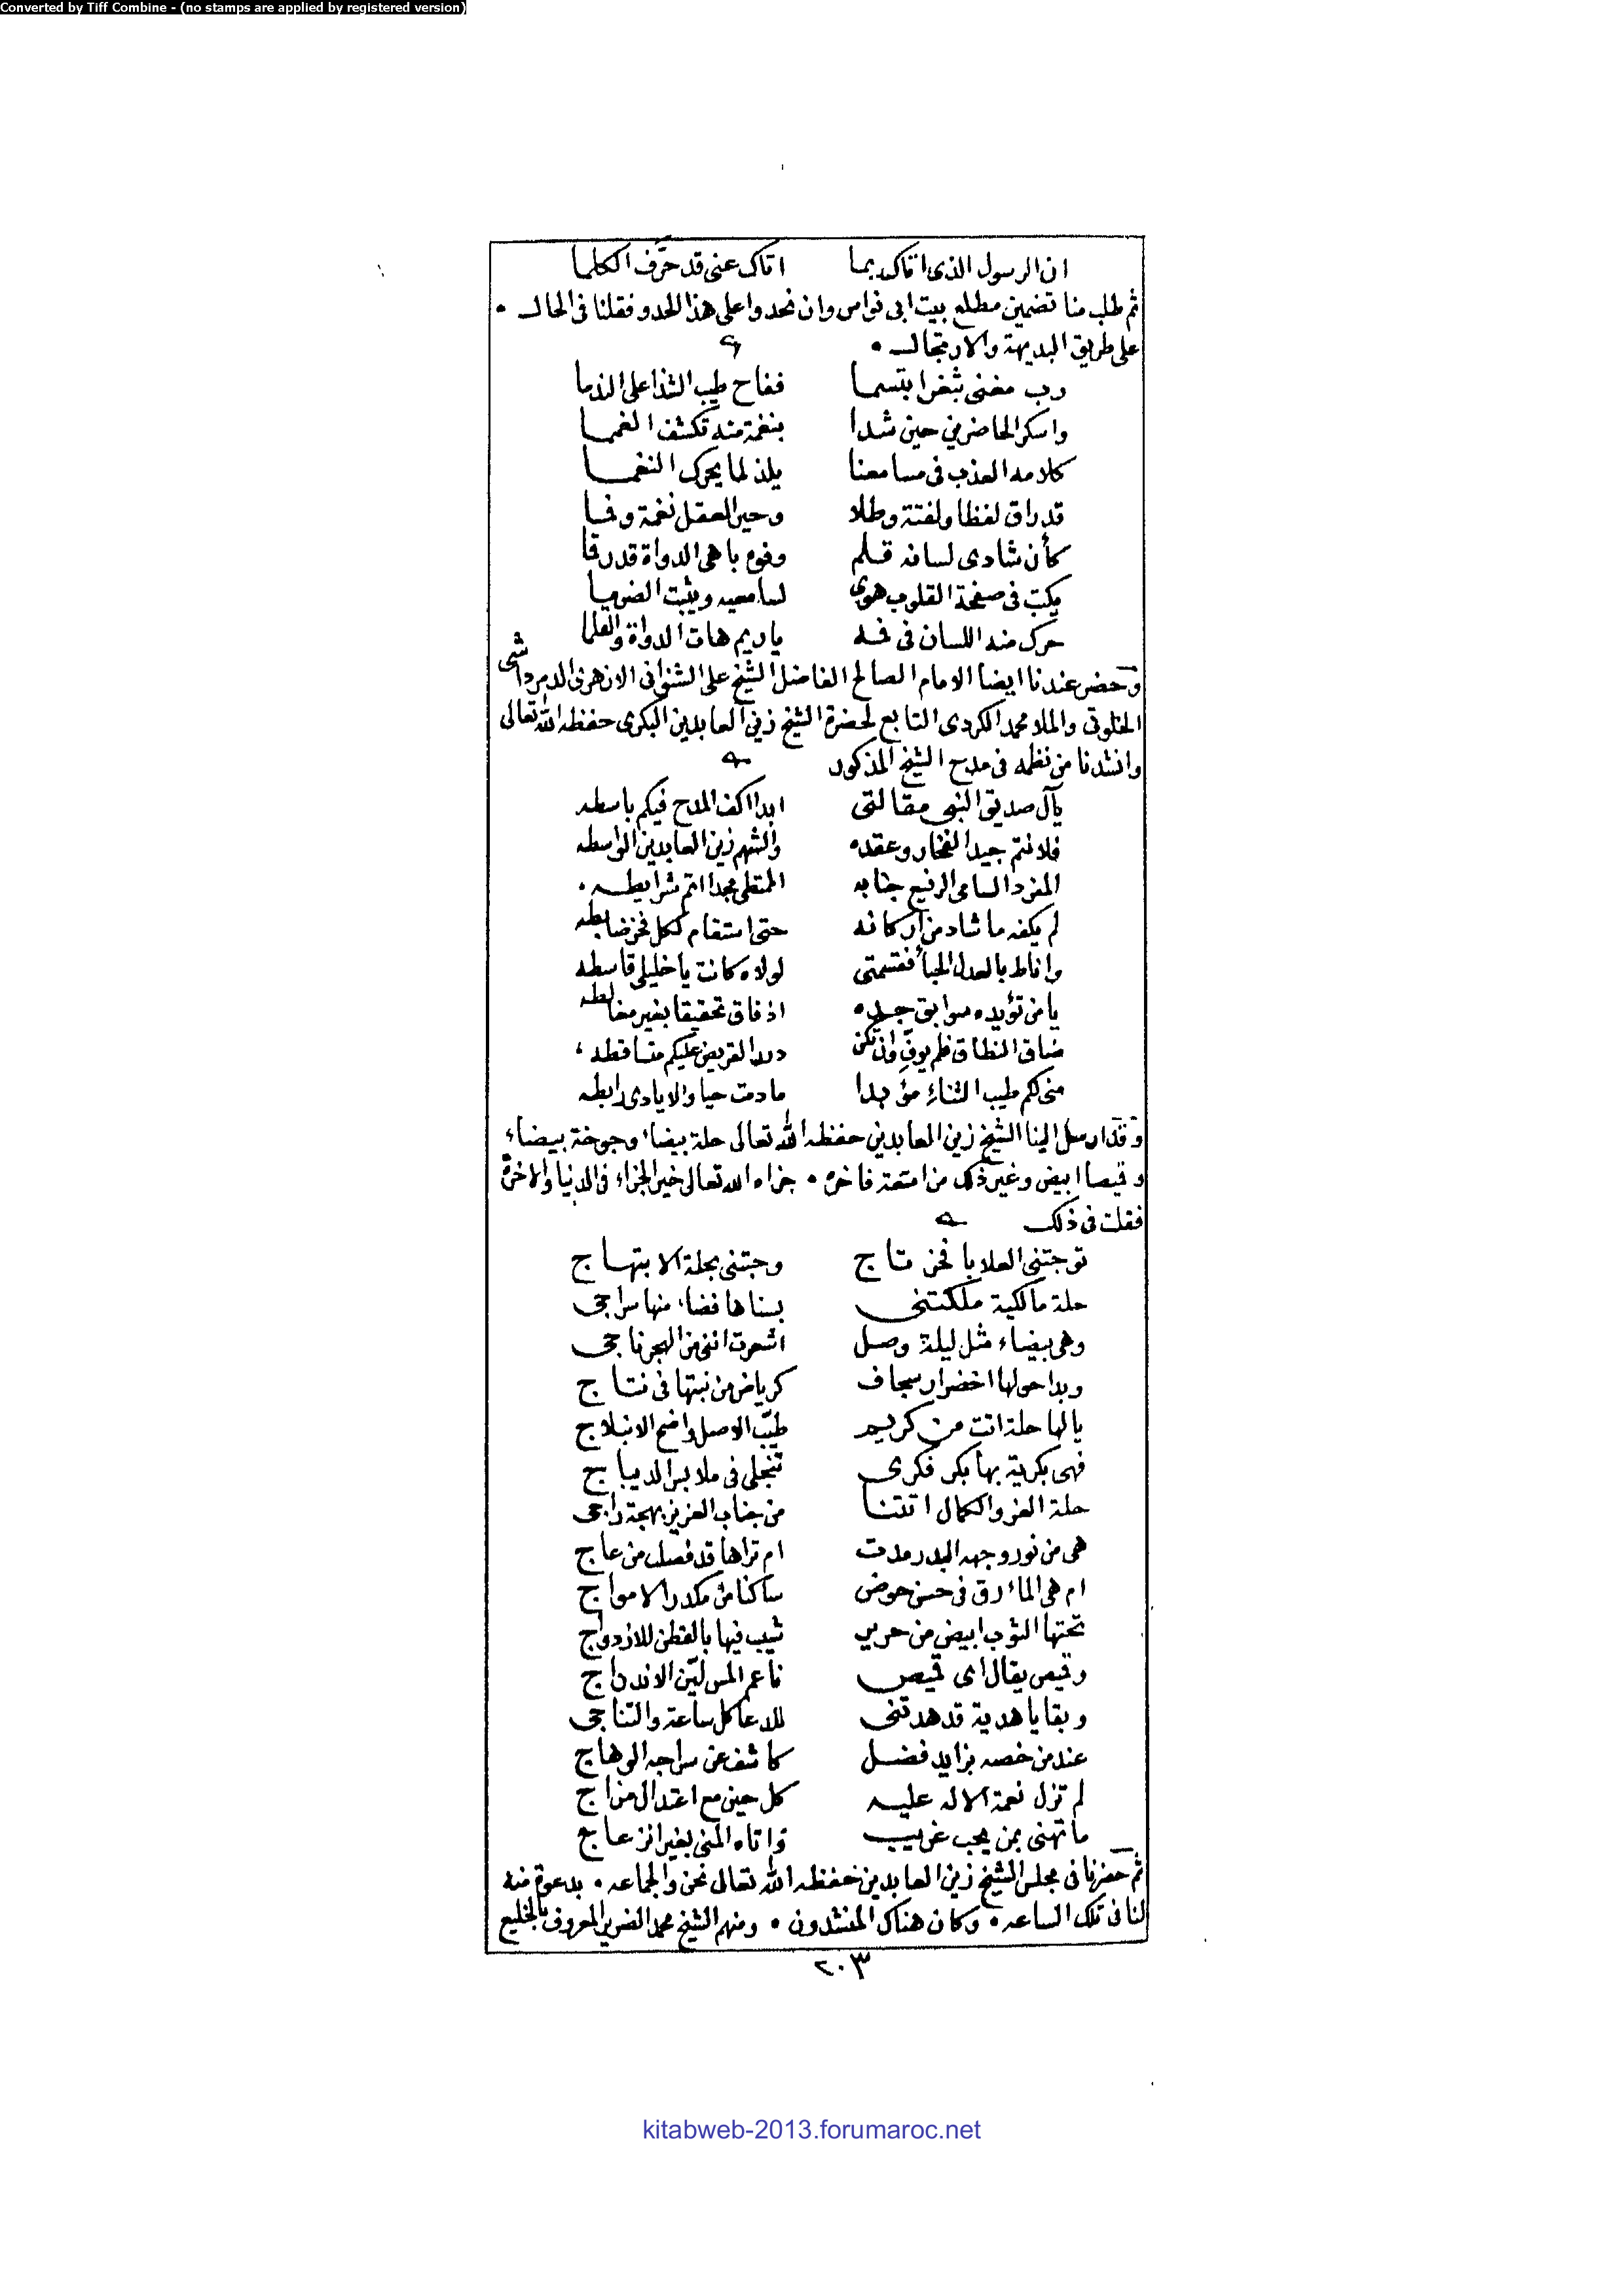 Converted by Tiff Combine - (no stamps are applied by registered version)
ان الرسول الذى اتاك بما اتاك عنى قد حرّف الكلما
ثم طلب منا تضمين مطلع بيت ابى نواس وان نحدوا على هذا الحدو فقلنا فى الحال •
على طريق البديهة والارتجال •
رب مغنى بثغر ابتسما ففاح طيب الشذا على الندما
واسكر الحاضرين حين شدا بنغمة منه تكشف الغمما
كلامه العذب فى مسامعنا يلذ لما يحرك النغما
قد راق لفظا ولفتة وطلا وحير العقل نغمة وفما
كأن شادى لسانه قلم وفوه باهى الدواة قد رقا
يكتب فى صفحة القلوب هوى لسامعيه ويثبت الضرما
حرك منه اللسان فى فمه ياريم هات الدواة والقلما
وحضر عندنا ايضا الامام الصالح الفاضل الشيخ على الشنوانى الازهرى الدمرداشى
الخلوتى والملا محمد الكردى التابع لحضرة الشيخ زين العابدين البكرى حفظه الله تعالى
وانشدنا من نظمه فى مدح الشيخ المذكور
يآل صديق النبى مقالتى ابدا اكف المدح فيكم باسطه
فلانتم جيد الفخار وعقده والشهم زين العابدين الواسطه
المفرد السامى الرفيع جنابه المتطى مجدا اتم شرايطه •
لم يكفه ما شاد من اركانه حتى استقام لكل فخر ضابطه
واناط بالعدل الجبا فقسمتى لولاه كانت ياخليلى قاسطه
يامن تؤيده سوابق جده اذ فاق تحقيقا بغير مغالطه
ضاق النطاق فلم يوفّ وان تكن درر القريض عليكم متساقطه
منى لكم طيب الثناء مؤبدا مادمت حيا والايادى رابطه
وقد ارسل الينا الشيخ زين العابدين حفظه الله تعالى حلة بيضاء وجوخة بيضاء
وقيصا ابيض وغير ذلك من امتعة فاخره • جزاه الله تعالى خير الجزاء فى الدنيا والاخرة
فقلت فى ذلك
توجتنى العلا با فخر تاج وحبتنى بحلة الابتهاج
حلة مالكية ملكتنى بسناها فضاء منها سراجى
وهى بيضاء مثل ليلة وصل اشعرت اننى من الهجر ناجى
وبدا حولها اخضرار سجاف كرياض من نبتها فى نتاج
يالها حلة اتت من كريم طيّب الاصل واضح الانبلاج
فهى بكرية بها بكر فكرى تنجلى فى ملابس الديباج
حلة العز والكمال اتتنا من جناب العزيز بهجة راجى
هى من نور وجهه البدر مدت ام تراها قد فصلت من عاج
ام هى الماء رق فى حسن حوض ساكنا من مكدر الامواج
تحتها الثوب ابيض من حرير شيب فيها بالقطن للازدواج
وقيص يقال اى قيص ناعم المس ليّن الاندراج
وبقايا هدية قد هدتنى للدعا كل ساعة والتناجى
عند من خصه بزايد فضل كاشف عن سراجه الوهاج
لم تزل نعمة الاله عليه كل حين مع اعتدال مزاج
ما تهنى بمن يحب غريب واتاه المنى بغير انزعاج
ثم حضرنا فى مجلس الشيخ زين العابدين حفظه الله تعالى نحن والجماعه • بدعوة منه
لنا فى تلك الساعه • وكان هناك المنشدون • ومنهم الشيخ محمد الضرير المعروف بالخليع
٢٠٣
kitabweb-2013.forumaroc.net